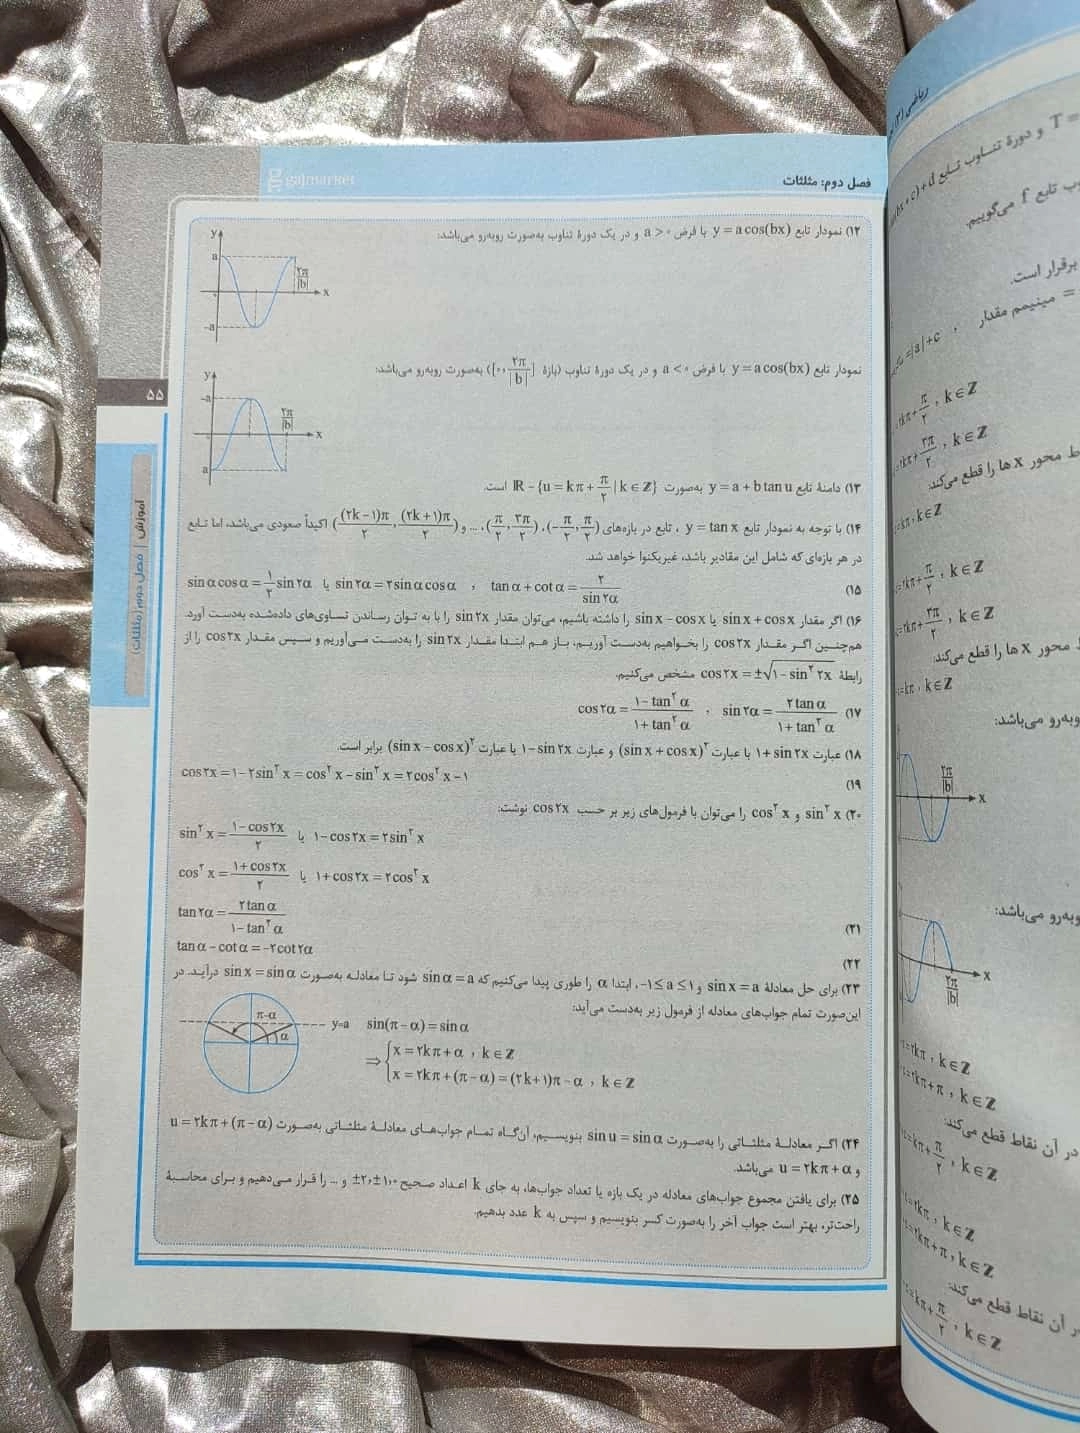 gajmarket
فصل دوم: مثلثات
۱۲) نمودار تابع y = a cos(bx) با فرض a > ۰ و در یک دورهٔ تناوب به‌صورت روبه‌رو می‌باشد:
y
a
۲π/|b|
x
-a
نمودار تابع y = a cos(bx) با فرض a < ۰ و در یک دورهٔ تناوب (بازهٔ [۰, ۲π/|b|]) به‌صورت روبه‌رو می‌باشد:
y
-a
۲π/|b|
x
a
۵۵
آموزش | فصل دوم (مثلثات)
۱۳) دامنهٔ تابع y = a + b tan u به‌صورت ℝ - {u = kπ + π/۲ | k ∈ ℤ} است.
۱۴) با توجه به نمودار تابع y = tan x ، تابع در بازه‌های (-π/۲, π/۲)، (π/۲, ۳π/۲)، ... و ((۲k-۱)π/۲, (۲k+۱)π/۲) اکیداً صعودی می‌باشد، اما تابع
در هر بازه‌ای که شامل این مقادیر باشد، غیریکنوا خواهد شد.
۱۵) tan α + cot α = ۲/sin ۲α ، sin ۲α = ۲ sin α cos α یا sin α cos α = ۱/۲ sin ۲α
۱۶) اگر مقدار sin x + cos x یا sin x - cos x را داشته باشیم، می‌توان مقدار sin ۲x را با به توان رساندن تساوی‌های داده‌شده به‌دست آورد.
هم‌چنین اگر مقدار cos ۲x را بخواهیم به‌دست آوریم، باز هم ابتدا مقدار sin ۲x را به‌دست می‌آوریم و سپس مقدار cos ۲x را از
رابطهٔ cos ۲x = ±√(۱ - sin² ۲x) مشخص می‌کنیم.
۱۷) sin ۲α = ۲ tan α/(۱ + tan² α) ، cos ۲α = (۱ - tan² α)/(۱ + tan² α)
۱۸) عبارت ۱ + sin ۲x با عبارت (sin x + cos x)² و عبارت ۱ - sin ۲x با عبارت (sin x - cos x)² برابر است.
۱۹) cos ۲x = ۱ - ۲ sin² x = cos² x - sin² x = ۲ cos² x - ۱
۲۰) sin² x و cos² x را می‌توان با فرمول‌های زیر بر حسب cos ۲x نوشت:
sin² x = (۱ - cos ۲x)/۲ یا ۱ - cos ۲x = ۲ sin² x
cos² x = (۱ + cos ۲x)/۲ یا ۱ + cos ۲x = ۲ cos² x
۲۱) tan ۲α = ۲ tan α/(۱ - tan² α)
۲۲) tan α - cot α = -۲ cot ۲α
۲۳) برای حل معادلهٔ sin x = a و -۱ ≤ a ≤ ۱، ابتدا α را طوری پیدا می‌کنیم که sin α = a شود تا معادله به‌صورت sin x = sin α درآید. در
این‌صورت تمام جواب‌های معادله از فرمول زیر به‌دست می‌آید:
π-α
α
y=a
sin(π - α) = sin α
⇒ { x = ۲kπ + α , k ∈ ℤ
x = ۲kπ + (π - α) = (۲k + ۱)π - α , k ∈ ℤ
۲۴) اگر معادلهٔ مثلثاتی را به‌صورت sin u = sin α بنویسیم، آن‌گاه تمام جواب‌های معادلهٔ مثلثاتی به‌صورت u = ۲kπ + (π - α)
و u = ۲kπ + α می‌باشد.
۲۵) برای یافتن مجموع جواب‌های معادله در یک بازه یا تعداد جواب‌ها، به جای k اعداد صحیح ۰، ±۱، ±۲ و ... را قرار می‌دهیم و برای محاسبهٔ
راحت‌تر، بهتر است جواب آخر را به‌صورت کسر بنویسیم و سپس به k عدد بدهیم.
ریاضی (۳)
و دورهٔ تناوب تابع
T =
(bx+c)+d
تابع f می‌گوییم.
برقرار است.
= مینیمم مقدار ، |a|+c
۲kπ + π/۲ , k ∈ ℤ
۲kπ + ۳π/۲ , k ∈ ℤ
محور xها را قطع می‌کند:
kπ, k ∈ ℤ
۲kπ + π/۲ , k ∈ ℤ
۲kπ + ۳π/۲ , k ∈ ℤ
محور xها را قطع می‌کند:
kπ , k ∈ ℤ
می‌باشد:
۲π/|b|
x
می‌باشد:
x
۲π/|b|
۲kπ , k ∈ ℤ
۲kπ+π , k ∈ ℤ
در آن نقاط قطع می‌کند:
kπ + π/۲ , k ∈ ℤ
۲kπ , k ∈ ℤ
۲kπ+π , k ∈ ℤ
آن نقاط قطع می‌کند:
kπ + π/۲ , k ∈ ℤ